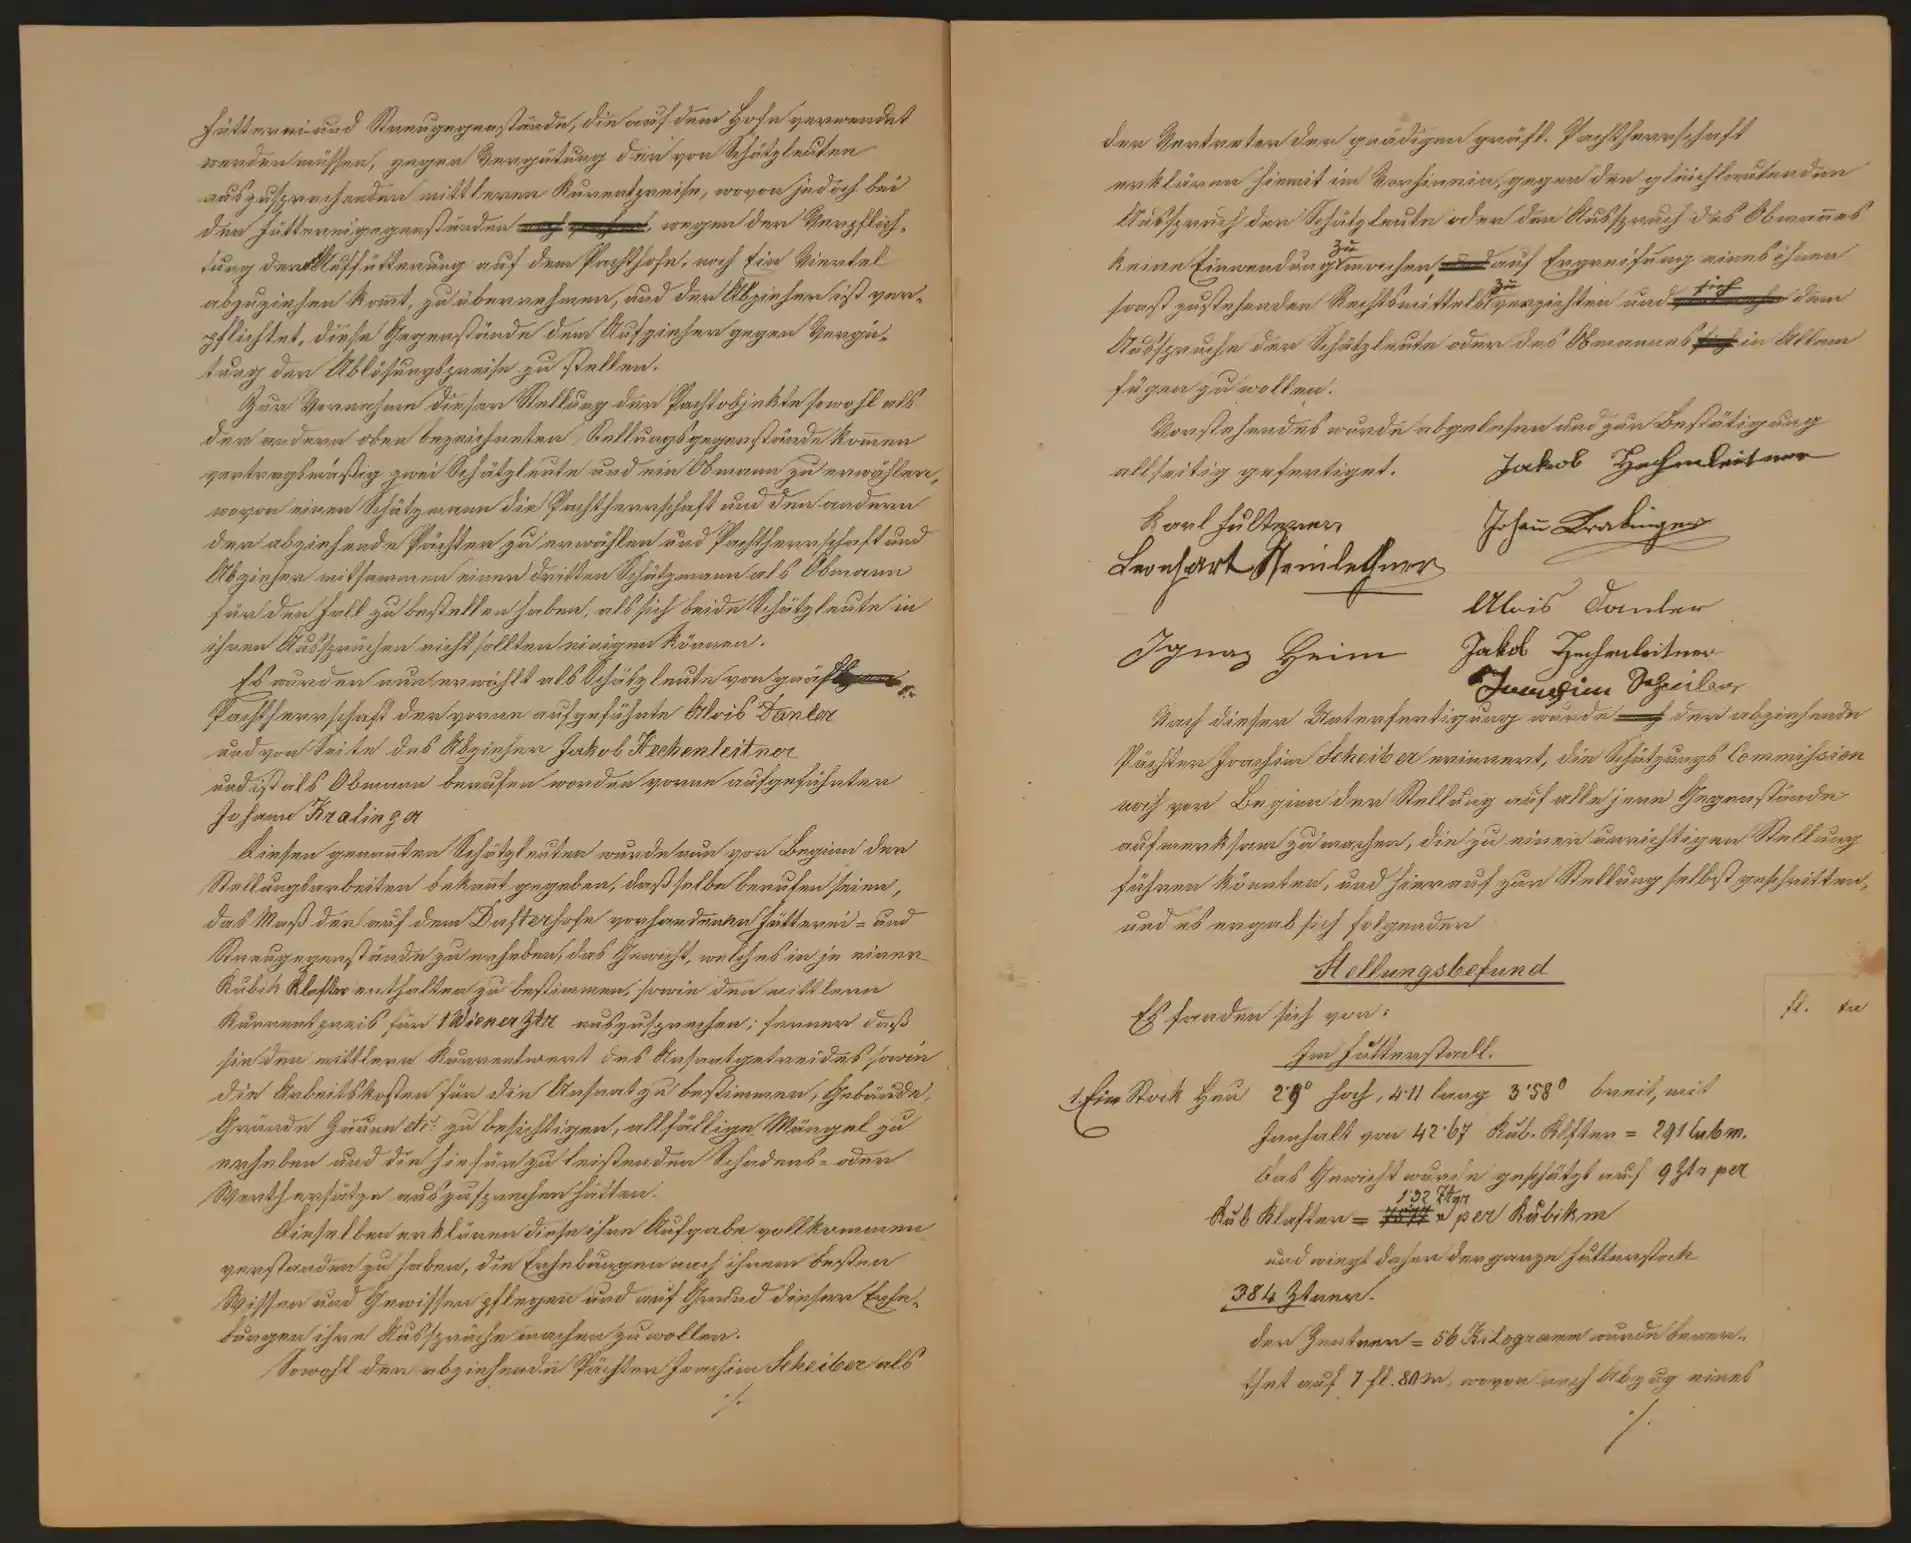 Fütterei- und Streugegenstände, die auf dem Hofe verwendet
werden müssen, gegen Vergütung der von Schätzleuten
auszusprechenden mittleren Kurrentpreise, wovon jedoch bei
den Füttereigegenständen noch wegen der Verpflich-
tung der Auffütterung auf dem Pachthofe, noch Ein Viertel
abzuziehen kom̅t, zu übernehmen, und der Abzieher ist ver-
pflichtet, diese Gegenstände dem Aufzieher gegen Vergü-
tung der Ablösungspreise zu stellen.
Zur Vornahme dieser Stellung der Pachtobjekte sowohl als
der andern oben bezeichneten Stellungsgegenstände kom̅en
vertragsmäßig zwei Schätzleute und ein Obmann zu erwählen,
wovon einen Schätzmann die Pachtherrschaft und den andern
der abziehende Pächter zu erwählen und Pachtherrschaft und
Abzieher mitsammen einen dritten Schätzmann als Obmann
für den Fall zu bestellen haben, als sich beide Schätzleute in
ihren Aussprüchen nicht sollten einigen können.
Es wurden nun erwählt als Schätzleute von gräfl.
Pachtherrschaft der vorne aufgeführte Alois Danler
und von Seite des Abzieher Jakob Hechenleitner
und ist als Obmann berufen worden vorne aufgeführter
Johann Kralinger
Diesen genan̅ten Schätzleuten wurde nun vor Beginn der
Stellungsarbeiten bekan̅t gegeben, daß selbe berufen seien,
das Maß der auf dem Dafterhofe vorhandenen Fütterei- und
Streugegenstände zu erheben, das Gewicht, welches in je einer
Kubik Klafter enthalten zu bestimmen, sowie den mittlern
Kurrentpreis für 1 Wiener Ztr auszusprechen; ferner daß
sie den mittlern Kurrentwert des Ansaatgetreides sowie
die Arbeitskosten für die Ansaat zu bestimmen, Gebäude,
Gründe Zäune etc. zu besichtigen, allfällige Mängel zu
erheben und die hiefür zu leistenden Schadens- oder
Werthersätze auszusprechen hätten.
Dieselben erklären diese ihre Aufgabe vollkommen
verstanden zu haben, die Erhebungen nach ihrem besten
Wissen und Gewissen pflegen und auf Grund dieser Erhe-
bungen ihre Aussprüche machen zu wollen.
Sowohl der abziehende Pächter Joachim Scheiber als
./.
der Vertreter der gnädigen gräfl. Pachtherrschaft
erklären hiemit im Vorhinein, gegen den gleichlautenden
Ausspruch der Schätzleute oder den Ausspruch des Obman̅es
keine Einwendung zu machen, und auf Ergreifung eines ihnen
sonst zustehenden Rechtsmittels zu verzichten und sich dem
Ausspruche der Schätzleute oder des Obmannes sich in Allem
fügen zu wollen.
Vorstehendes wurde abgelesen und zur Bestätigung
allseitig gefertiget. Jakob Hechenleitner
Karl Fulterer Johan̅ Kralinger
Leonhart
Alois Danler
Ignaz Heim Jakob Hechenleitner
Joachim Scheiber
Nach dieser Unterfertigung wurde der abziehende
Pächter Joachim Scheiber erinnert, die Schätzungs Commission
noch vor Beginn der Stellung auf alle jene Gegenstände
aufmerksam zu machen, die zu einer unrichtigen Stellung
führen könnten, und hierauf zur Stellung selbst geschritten,
und es ergab sich folgender
Stellungsbefund
fl. kr
Es fanden sich vor:
Im Futterstadl.
1. Ein Stock Heu 2·9° hoch, 4·11 lang 3·58° breit, mit
Innhalt von 42·67 Kub. Klfter = 291 Cubm.
Das Gewicht wurde geschätzt auf 9 Ztr per
Kub Klafter = 1·32 Ztr per Kubikm
und wiegt daher der ganze Futterstock
384 Ztner.
der Zentner = 56 Kilogramm wurde bewer-
thet auf 1 fl. 80 kr, wovon nach Abzug eines
./.